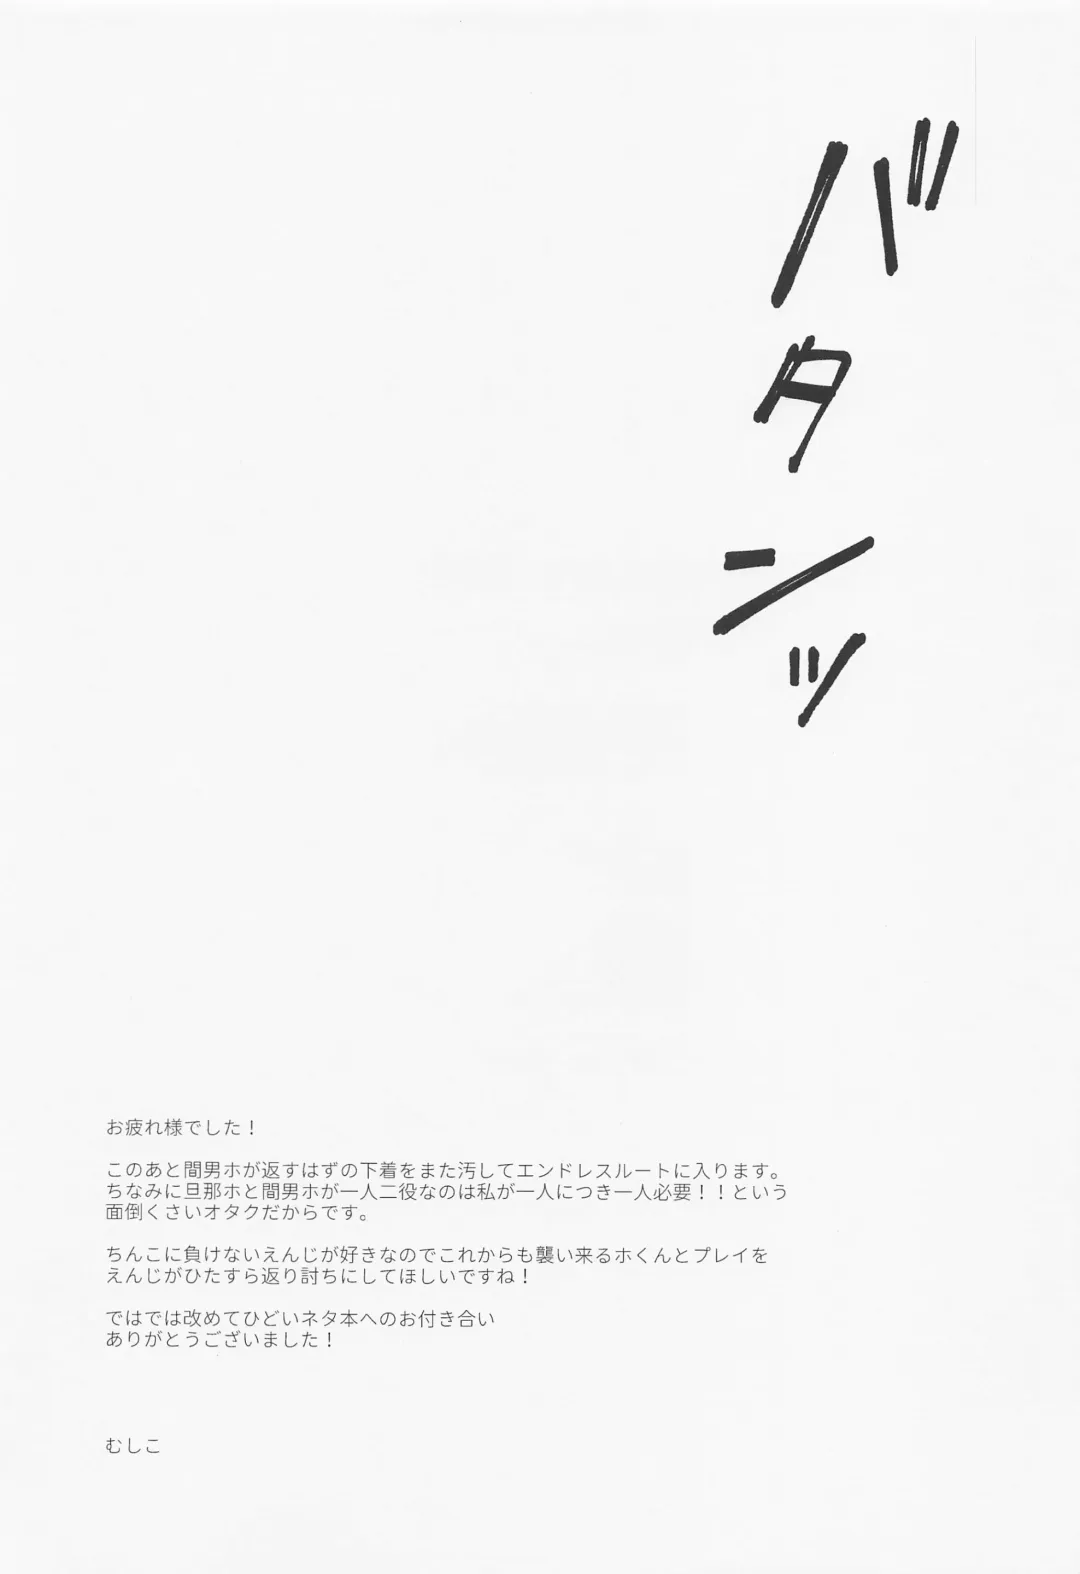 バタンッ
お疲れ様でした！
このあと間男ホが返すはずの下着をまた汚してエンドレスルートに入ります。
ちなみに旦那ホと間男ホが一人二役なのは私が一人につき一人必要！！という
面倒くさいオタクだからです。
ちんこに負けないえんじが好きなのでこれからも襲い来るホくんとプレイを
えんじがひたすら返り討ちにしてほしいですね！
ではでは改めてひどいネタ本へのお付き合い
ありがとうございました！
むしこ